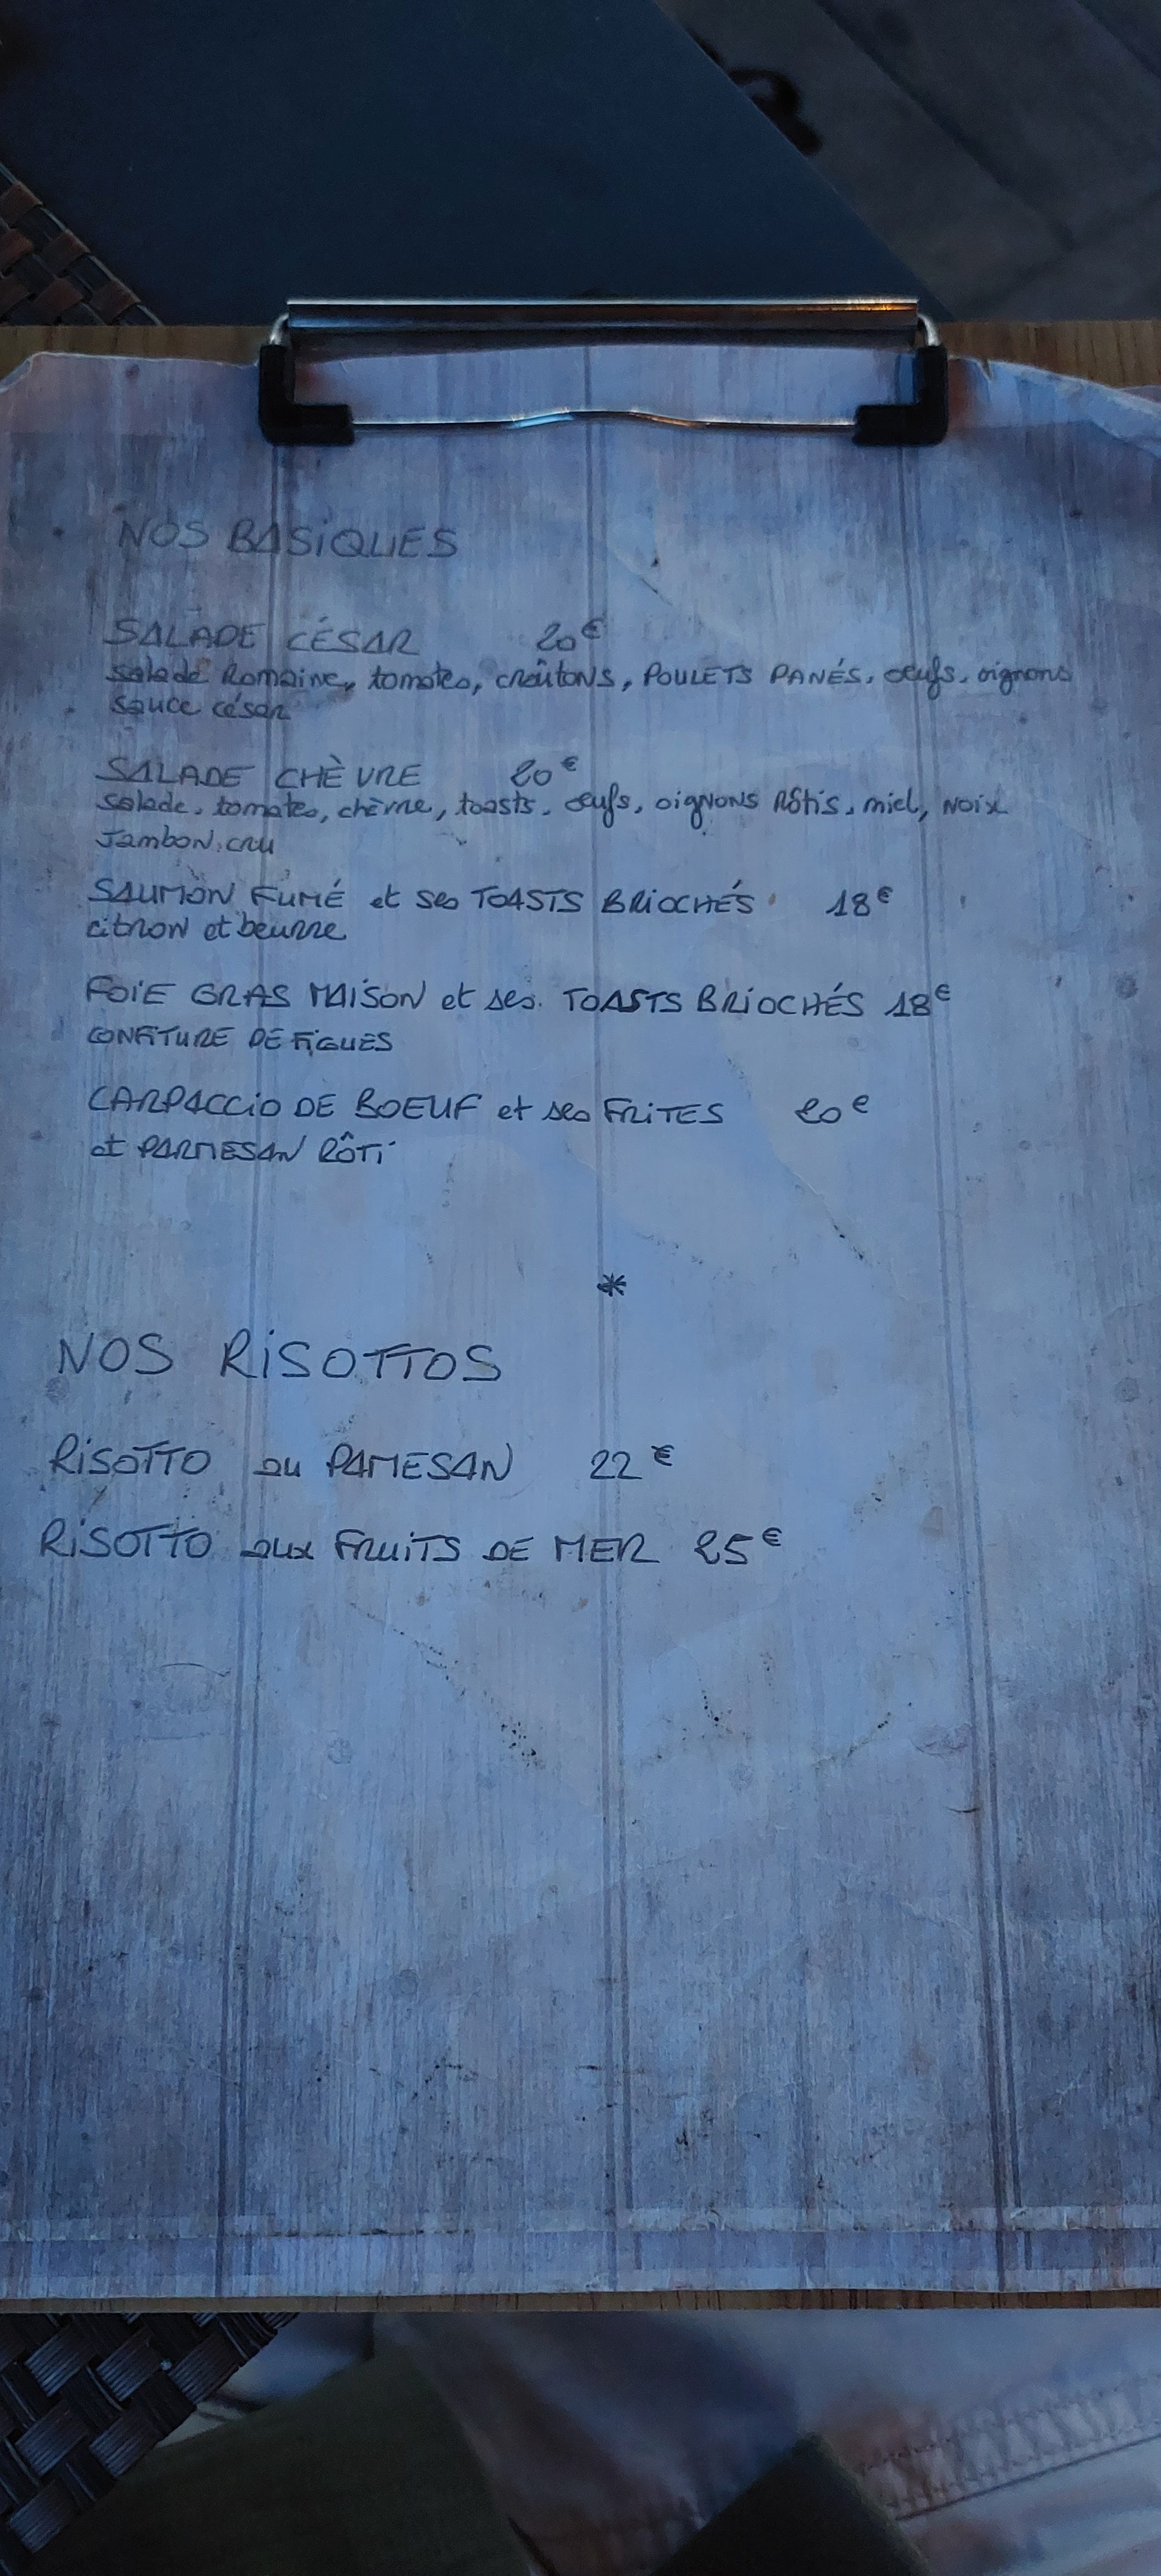 NOS BASIQUES
SALADE CÉSAR 20€
salade Romaine, tomates, croûtons, POULETS PANÉS, oeufs, oignons
sauce césar
SALADE CHÈVRE 20€
salade, tomates, chèvre, toasts, oeufs, oignons Rôtis, miel, noix
Jambon cru
SAUMON FUMÉ et ses TOASTS BRIOCHÉS 18€
citron et beurre
FOIE GRAS MAISON et ses TOASTS BRIOCHÉS 18€
CONFITURE DE FIGUES
CARPACCIO DE BOEUF et ses FRITES 20€
et PARMESAN RÔTI
*
NOS RISOTTOS
RISOTTO au PAMESAN 22€
RISOTTO aux FRUITS DE MER 25€